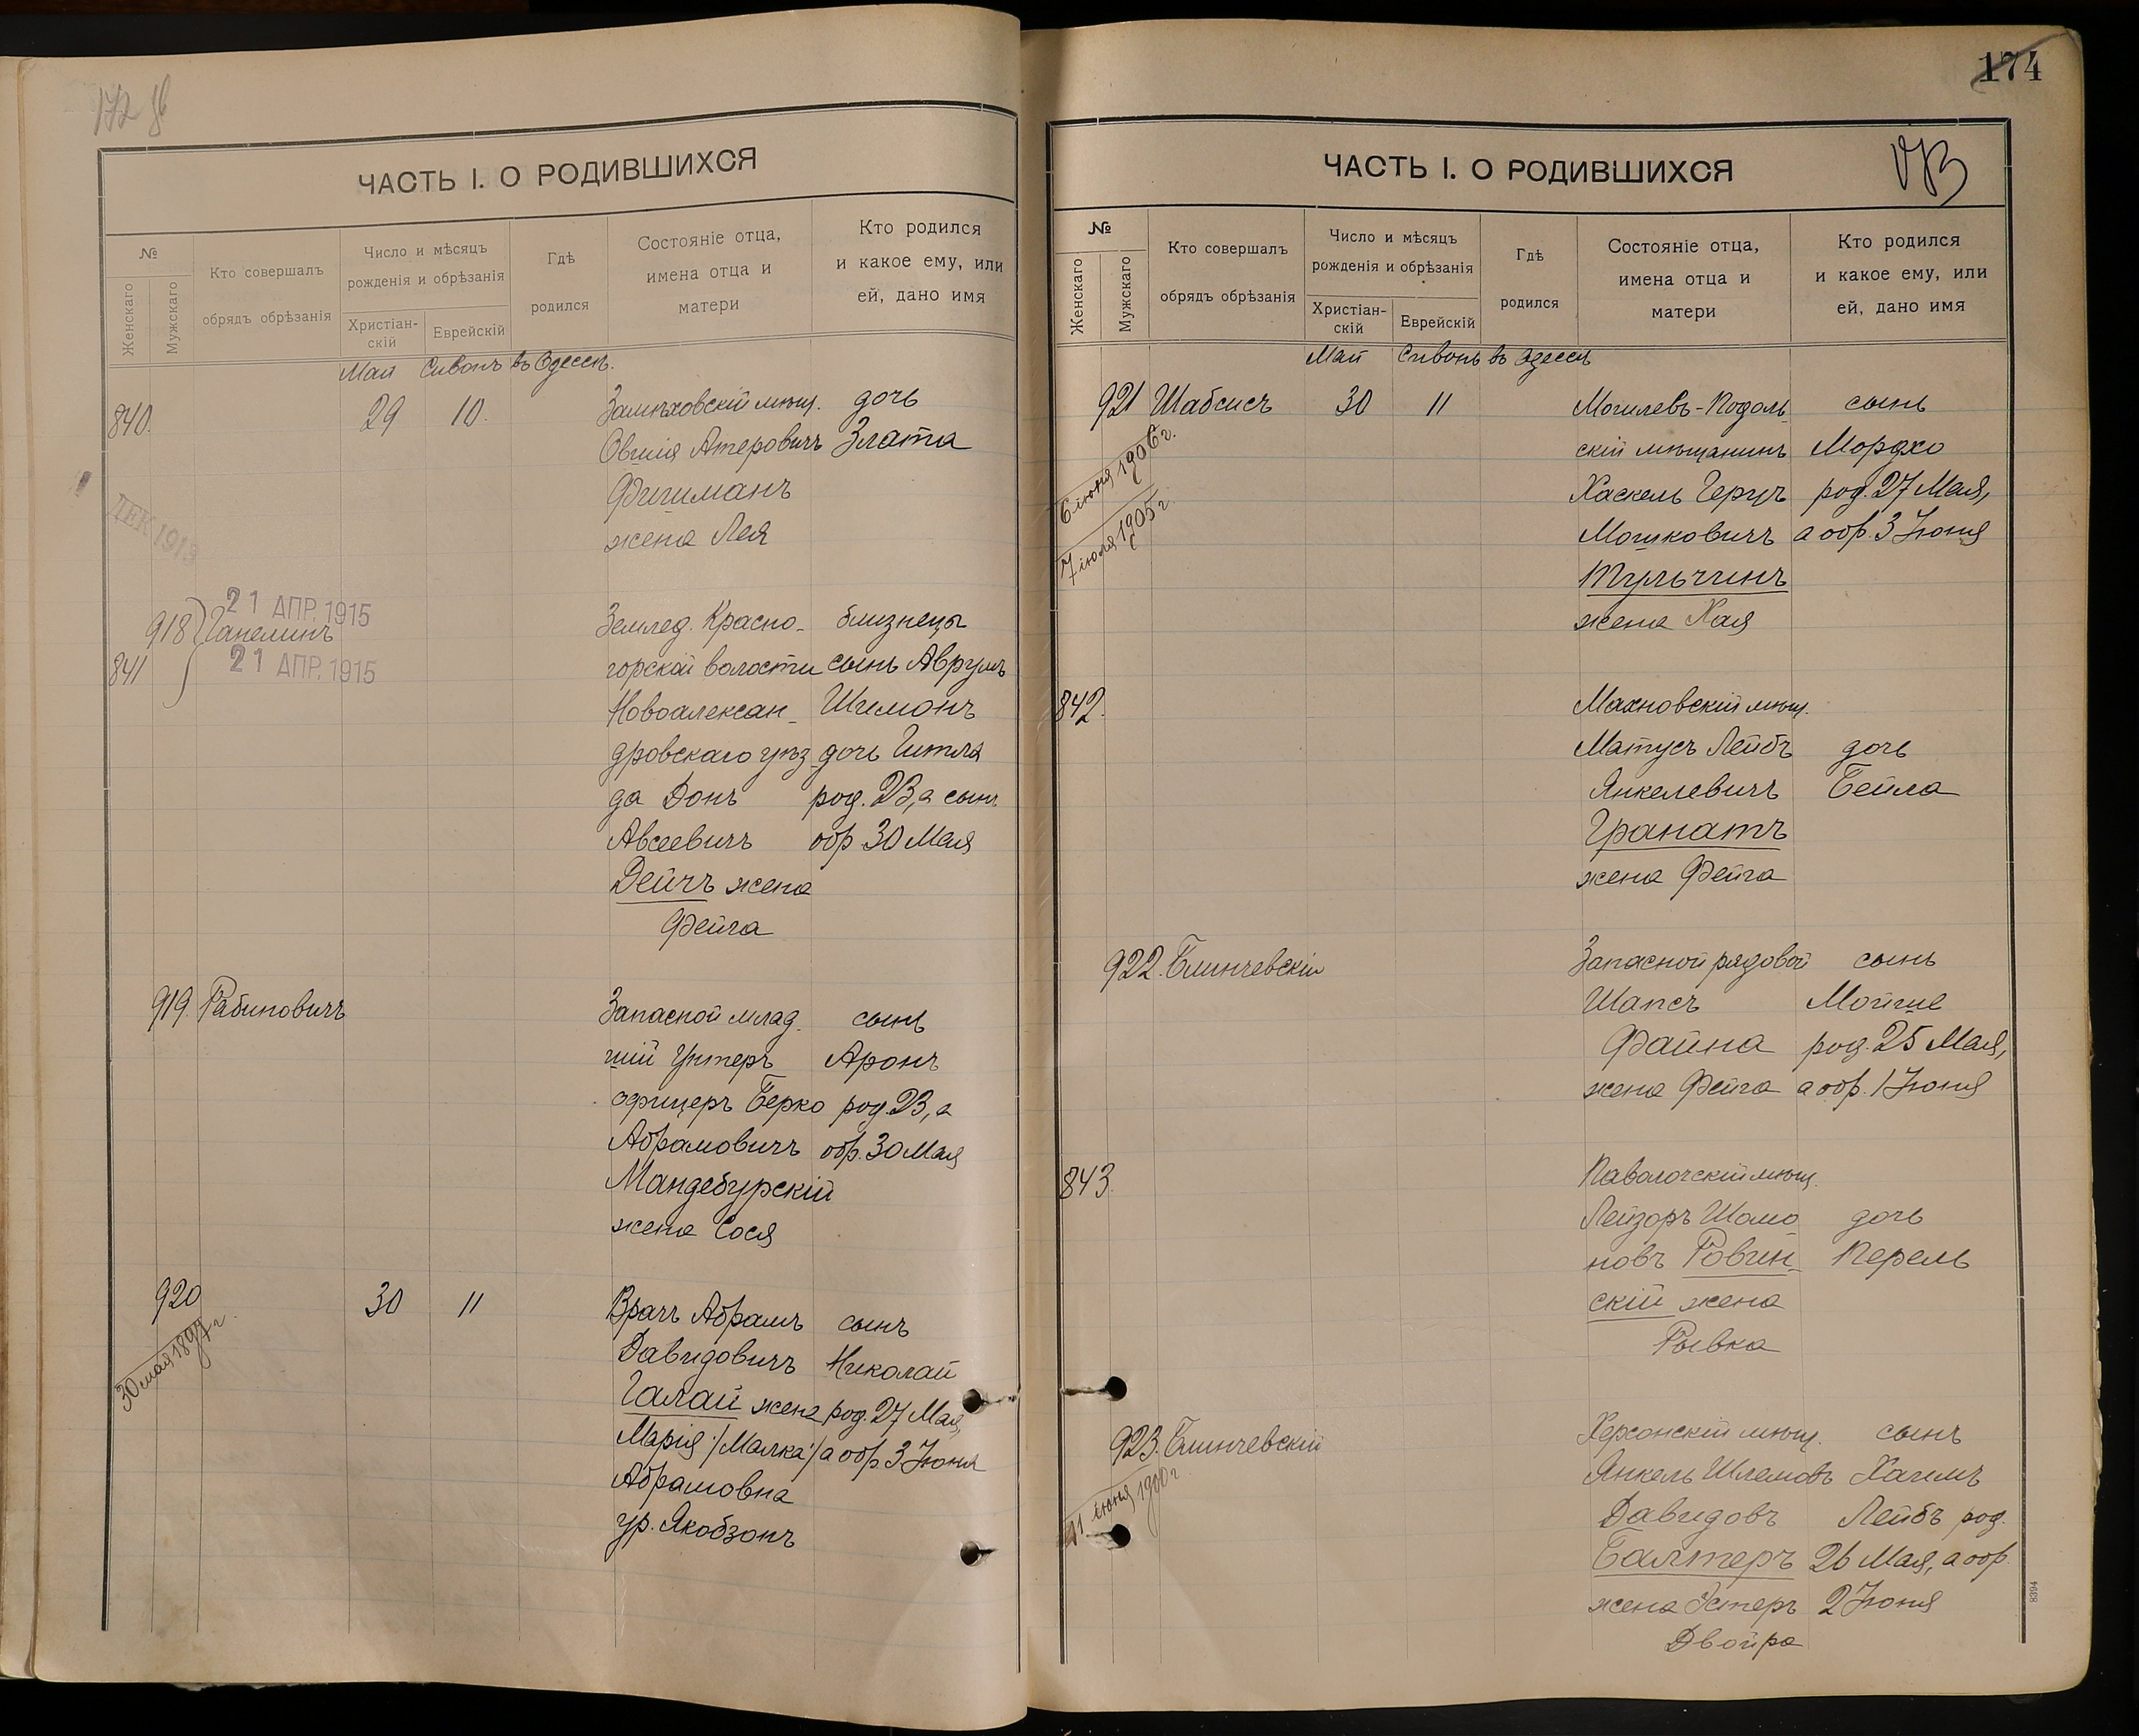 172 об
ЧАСТЬ I. О РОДИВШИХСЯ
№
Женскаго
Мужскаго
Кто совершалъ
обрядъ обрѣзанія
Число и мѣсяцъ
рожденія и обрѣзанія
Христіан-
скій
Еврейскій
Гдѣ
родился
Состояніе отца,
имена отца и
матери
Кто родился
и какое ему, или
ей, дано имя
Май Сивонъ въ Одессѣ.
840. 29 10. Замѣховскій мѣщ. дочь
Овшія Атеровичъ Злата
Фишманъ
жена Лея
ДЕК 1913
21 АПР. 1915
918 Ганелинъ Землед. Красно- близнецы
841 21 АПР. 1915 горской волости сынъ Аврумъ
Новоалексан- Шимонъ
дровскаго уѣз- дочь Гитля
да Донъ род. 23, а сынъ
Авсеевичъ обр 30 Мая
Дейчъ жена
Фейга
919. Рабиновичъ Запасной млад. сынъ
шій Унтеръ Аронъ
офицеръ Берко род. 23, а
Абрамовичъ обр. 30 Мая
Мандебурскій
жена Сося
920 30 11 Врачъ Абрамъ сынъ
30 мая 1897 г. Давидовичъ Николай
Галай жена род. 27 Мая,
Марія /Малка/ а обр. 3 Іюня
Абрамовна
ур. Якобзонъ
174
173
ЧАСТЬ I. О РОДИВШИХСЯ
№
Женскаго
Мужскаго
Кто совершалъ
обрядъ обрѣзанія
Число и мѣсяцъ
рожденія и обрѣзанія
Христіан-
скій
Еврейскій
Гдѣ
родился
Состояніе отца,
имена отца и
матери
Кто родился
и какое ему, или
ей, дано имя
Май Сивонъ въ Одессѣ
921 Шабсисъ 30 11 Могилевъ-Подоль- сынъ
6 іюня 1906 г. скій мѣщанинъ Мордхо
7 іюля 1905 г. Хаскель Герцъ род. 27 Мая,
Мошковичъ а обр. 3 Іюня
Тульчинъ
жена Хая
842. Махновскій мѣщ.
Матусъ Лейбъ дочь
Янкелевичъ Бейла
Гранатъ
жена Фейга
922. Блинчевскій Запасной рядовой сынъ
Шапсъ Мойше
Файна род. 25 Мая,
жена Фейга а обр. 1 Іюня
843. Паволочскій мѣщ.
Лейзоръ Шомо дочь
новъ Ровин- Перель
скій жена
Рывка
923. Блинчевскій Херсонскій мѣщ. сынъ
11 іюня 1900 г. Янкель Шлемовъ Хаимъ
Давидовъ Лейбъ род.
Балтеръ 26 Мая, а обр.
жена Эстеръ 2 Іюня
Двойра
8394